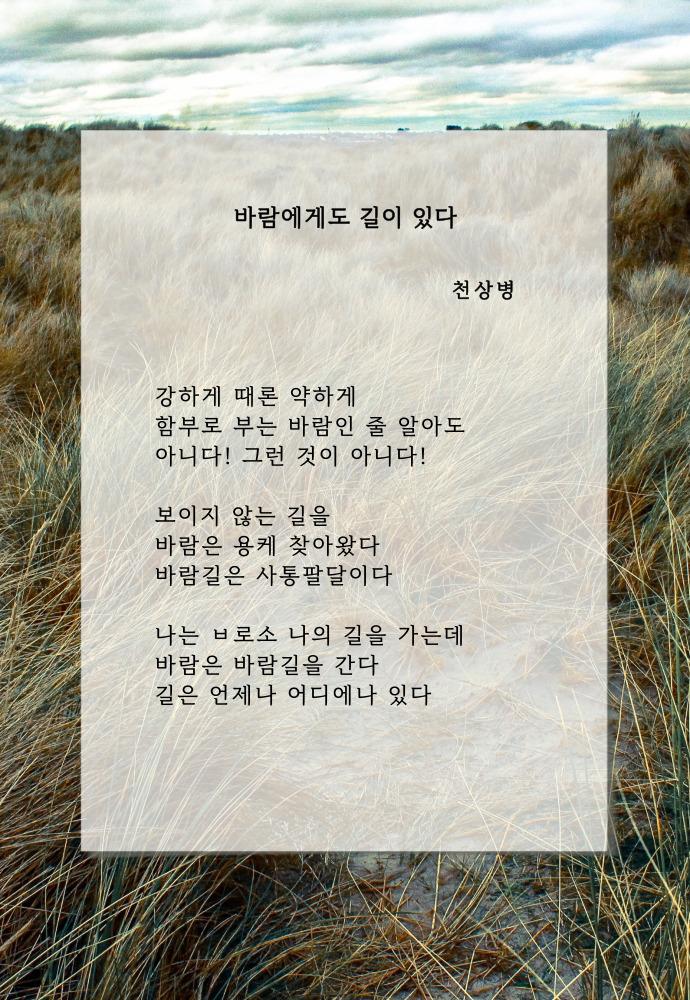 바람에게도 길이 있다
천상병
강하게 때론 약하게
함부로 부는 바람인 줄 알아도
아니다! 그런 것이 아니다!
보이지 않는 길을
바람은 용케 찾아왔다
바람길은 사통팔달이다
나는 ㅂ로소 나의 길을 가는데
바람은 바람길을 간다
길은 언제나 어디에나 있다